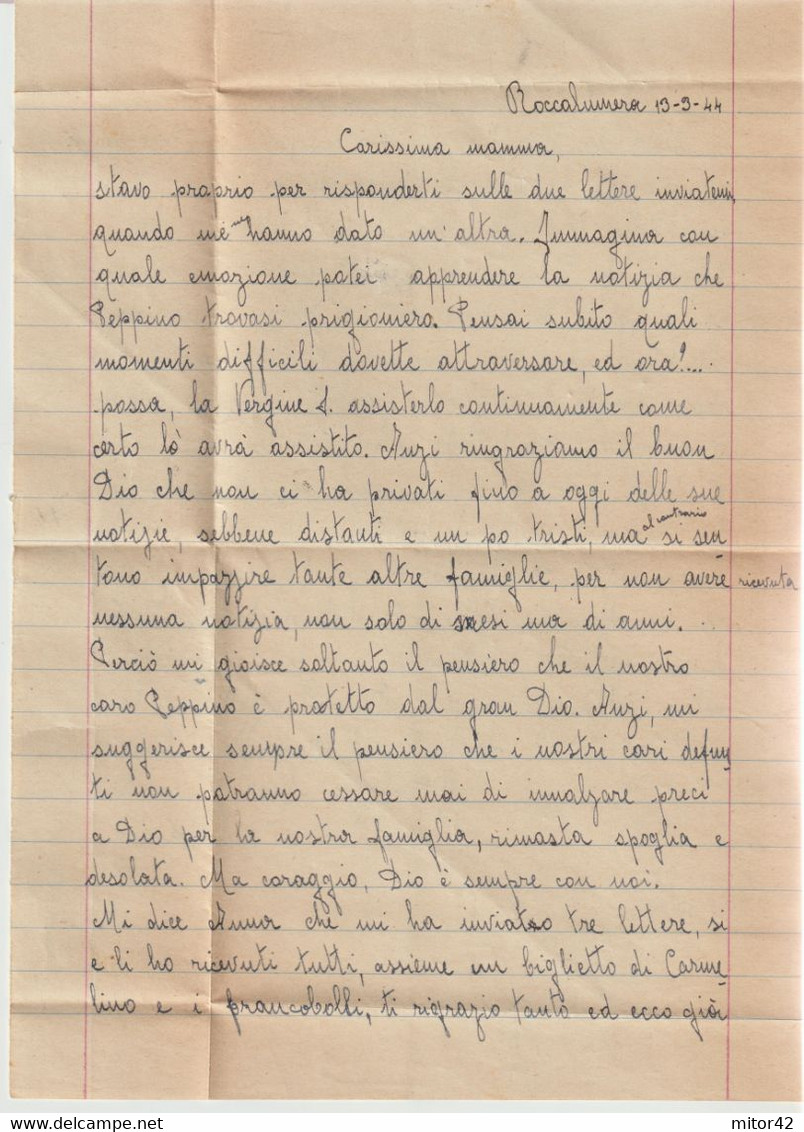 Roccalumera 13-3-44
Carissima mamma,
stavo proprio per risponderti sulle due lettere inviatemi,
quando me ne hanno dato un'altra. Immagina con
quale emozione potei apprendere la notizia che
Peppino trovasi prigioniero. Pensai subito quali
momenti difficili dovette attraversare, ed ora!...
possa, la Vergine S. assisterlo continuamente come
certo lò avrà assistito. Anzi ringraziamo il buon
Dio che non ci ha privati fino a oggi delle sue
notizie, sebbene distanti e un po tristi, ma al contrario si sen
tono impazzire tante altre famiglie, per non avere ricevuta
nessuna notizia, non solo di mesi ma di anni.
Perciò mi gioisce soltanto il pensiero che il nostro
caro Peppino è protetto dal gran Dio. Anzi, mi
suggerisce sempre il pensiero che i nostri cari defun
ti non potranno cessare mai di innalzare preci
a Dio per la nostra famiglia, rimasta spoglia e
desolata. Ma coraggio, Dio è sempre con noi.
Mi dice Anna che mi ha inviato tre lettere, si
e li ho ricevuti tutti, assieme un biglietto di Carme
lino e i francobolli, ti rigrazio tanto ed ecco già
mitor42